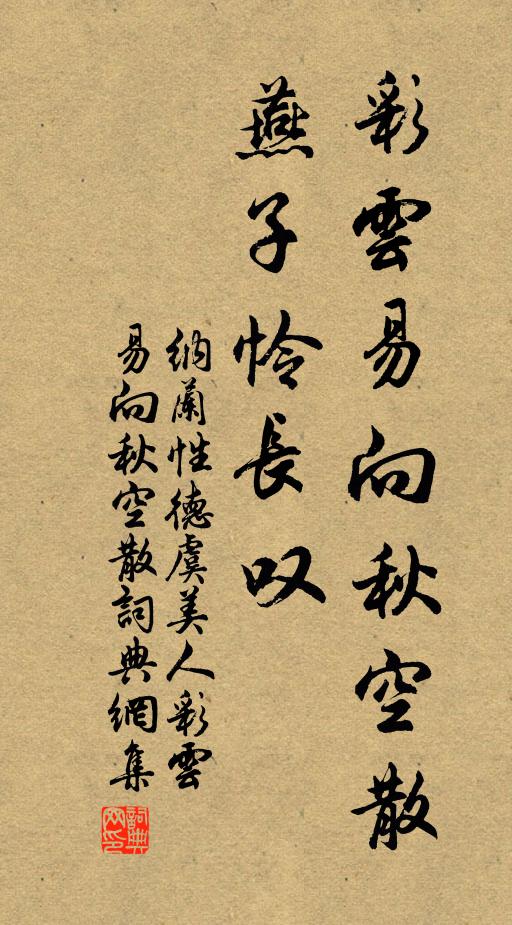 彩雲易向秋空散
燕子怜長叹
纳蘭性德虞美人彩雲
易向秋空散詞典網集
詞典网印